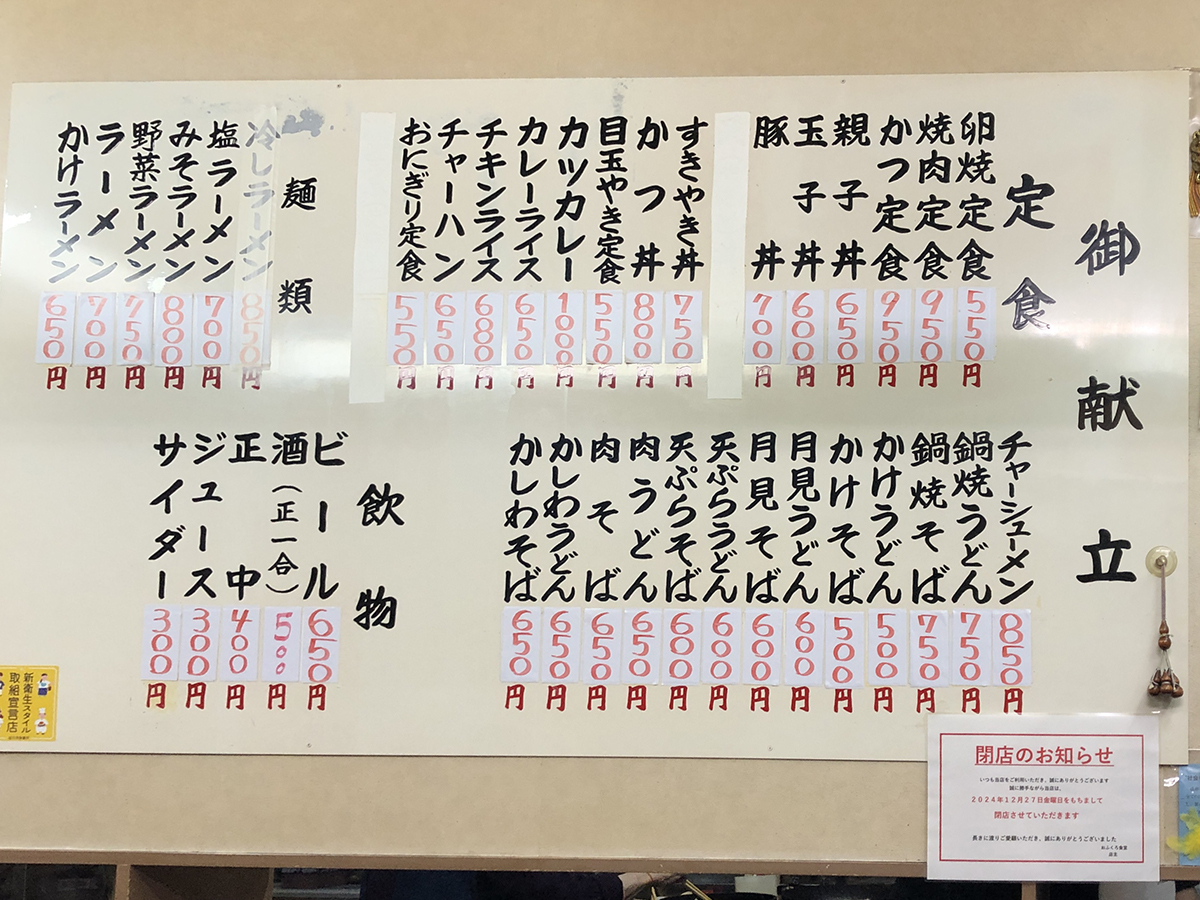 御献立
定食
卵焼定食 550円
焼肉定食 950円
かつ定食 950円
親子丼 650円
玉子丼 600円
豚丼 700円
すきやき丼 750円
かつ丼 800円
目玉やき定食 550円
カツカレー 1000円
カレーライス 650円
チキンライス 680円
チャーハン 650円
おにぎり定食 550円
麺類
冷しラーメン 850円
塩ラーメン 700円
みそラーメン 800円
野菜ラーメン 750円
ラーメン 700円
かけラーメン 650円
チャーシューメン 850円
鍋焼うどん 750円
鍋焼そば 750円
かけうどん 500円
かけそば 500円
月見うどん 600円
月見そば 600円
天ぷらうどん 600円
天ぷらそば 600円
肉うどん 650円
肉そば 650円
かしわうどん 650円
かしわそば 650円
飲物
ビール 650円
酒(正一合) 500円
正中 400円
ジュース 300円
サイダー 300円
新衛生スタイル
取組宣言店
閉店のお知らせ
いつも当店をご利用いただき、誠にありがとうございます
誠に勝手ながら当店は、
2024年12月27日金曜日をもちまして
閉店させていただきます
長きに渡りご愛顧いただき、誠にありがとうございました
おふくろ食堂
店主